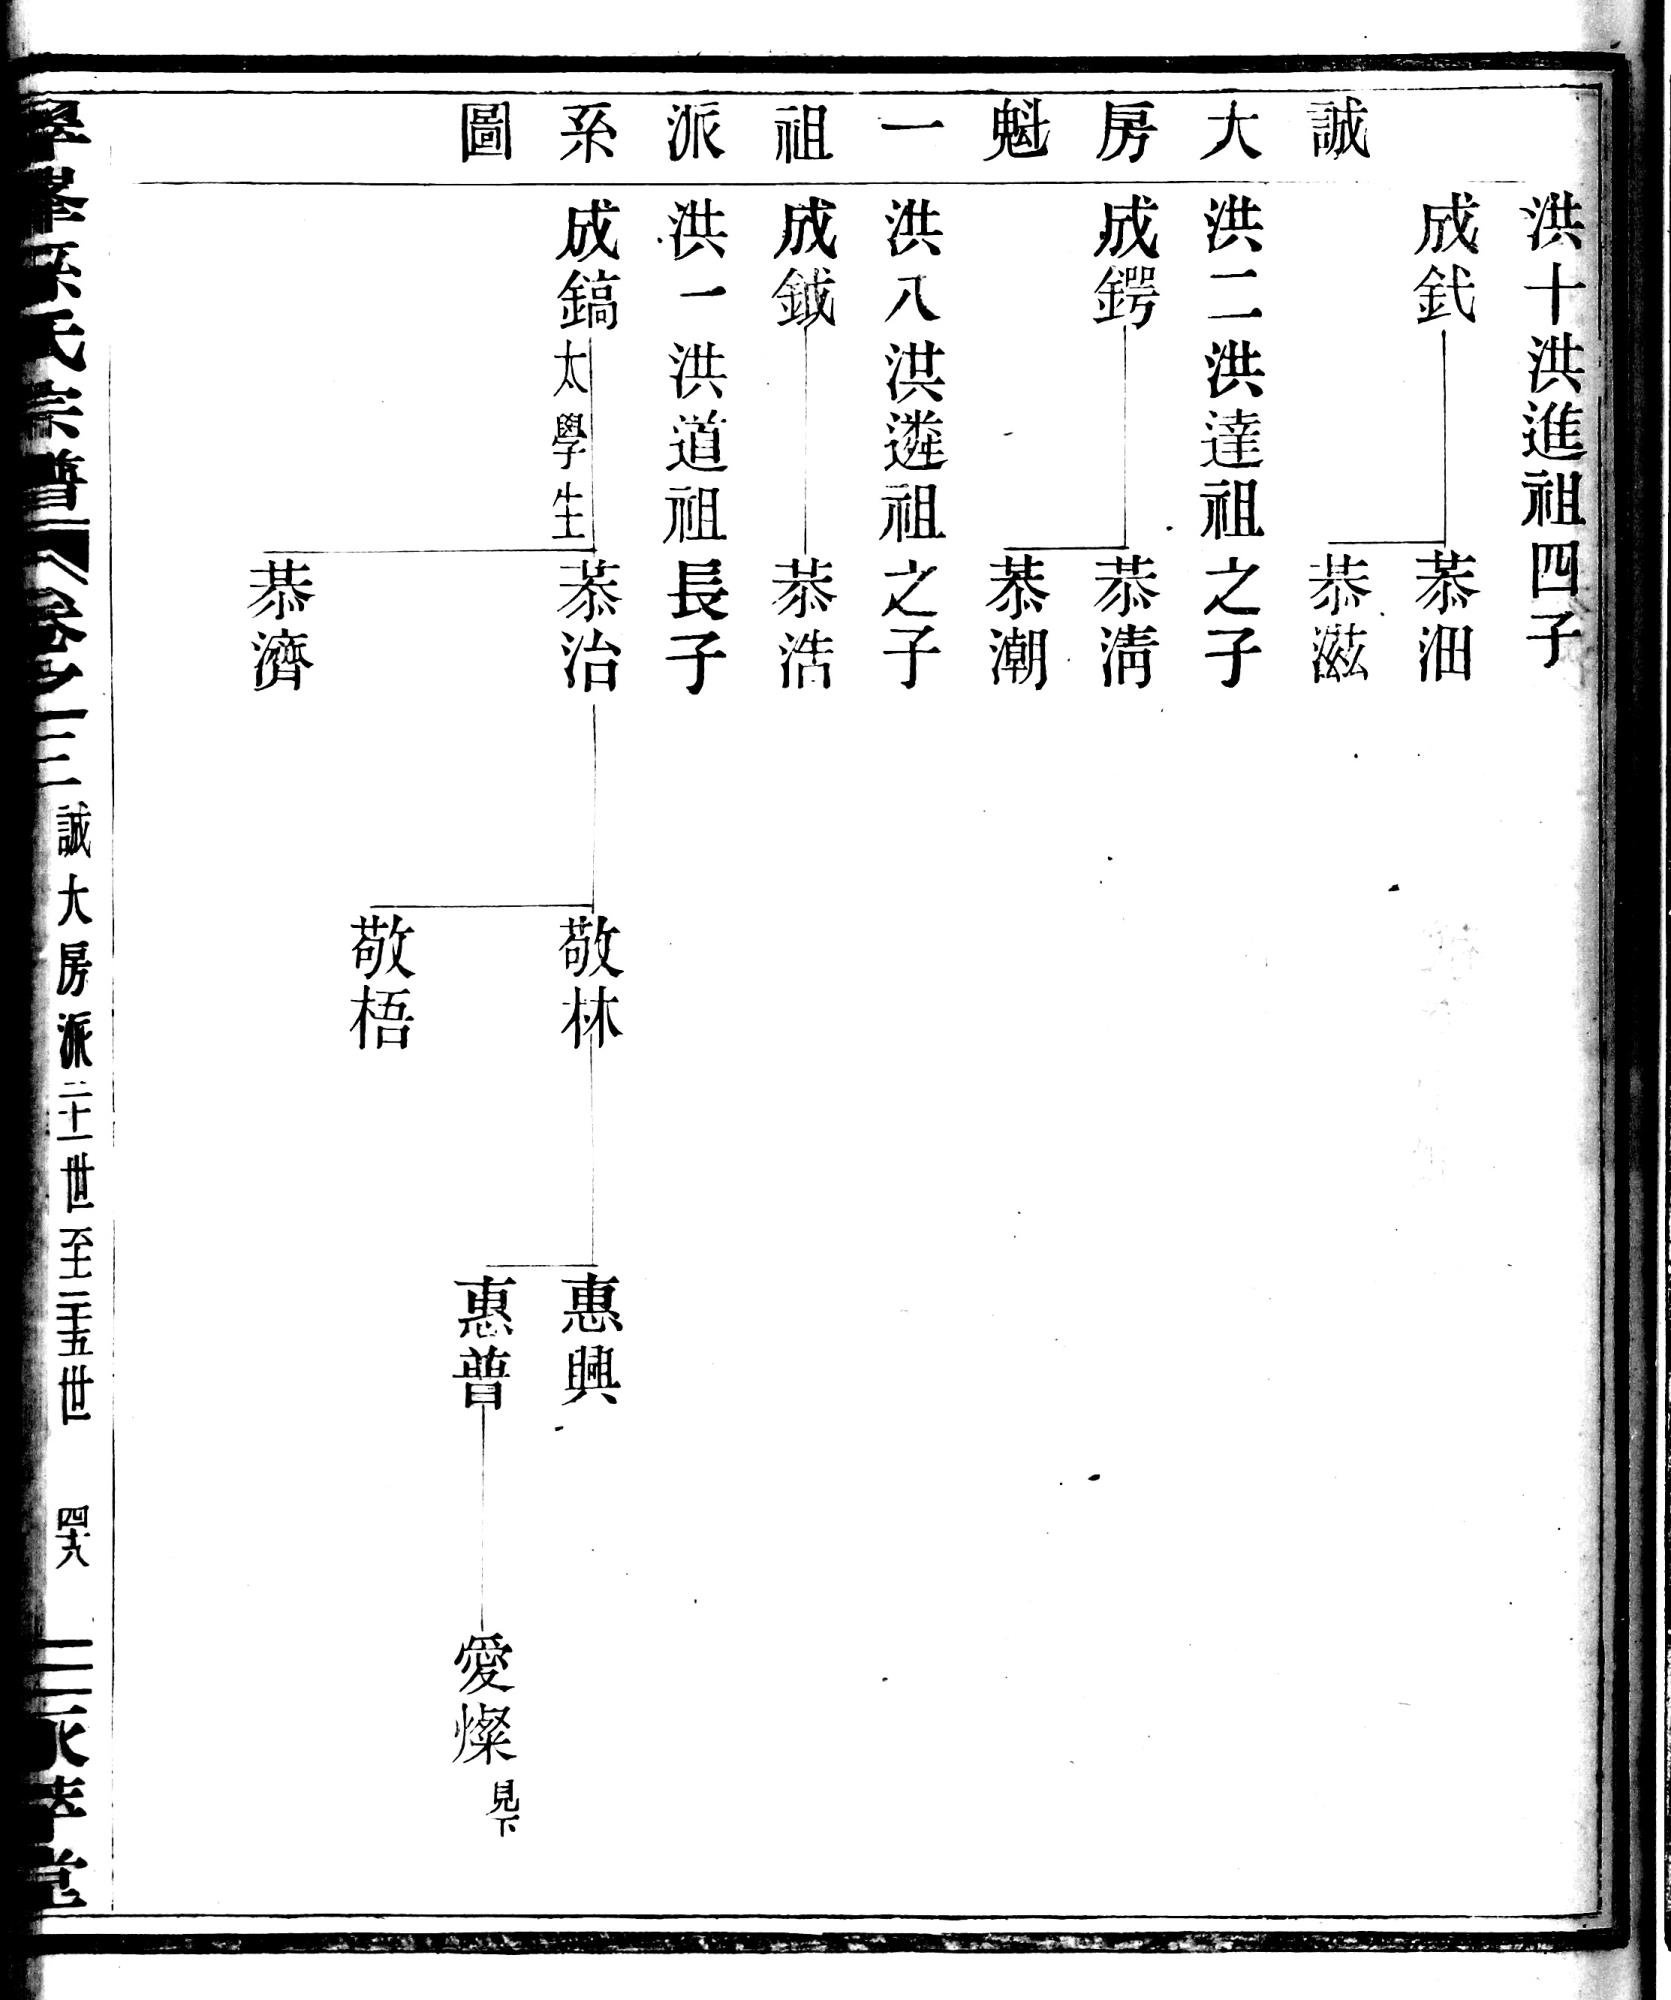 誠大房魁一祖派系圖
洪十洪進祖四子
成釴
恭沺
恭滋
洪二洪達祖之子
成鍔
恭清
恭潮
洪八洪遴祖之子
成鉞
恭浩
洪一洪道祖長子
成鎬太學生
恭治
恭濟
敬林
敬梧
惠興
惠普
愛燦見下
孫氏宗譜 卷之三 誠大房派二十一世至二十五世 四十六 永萃堂